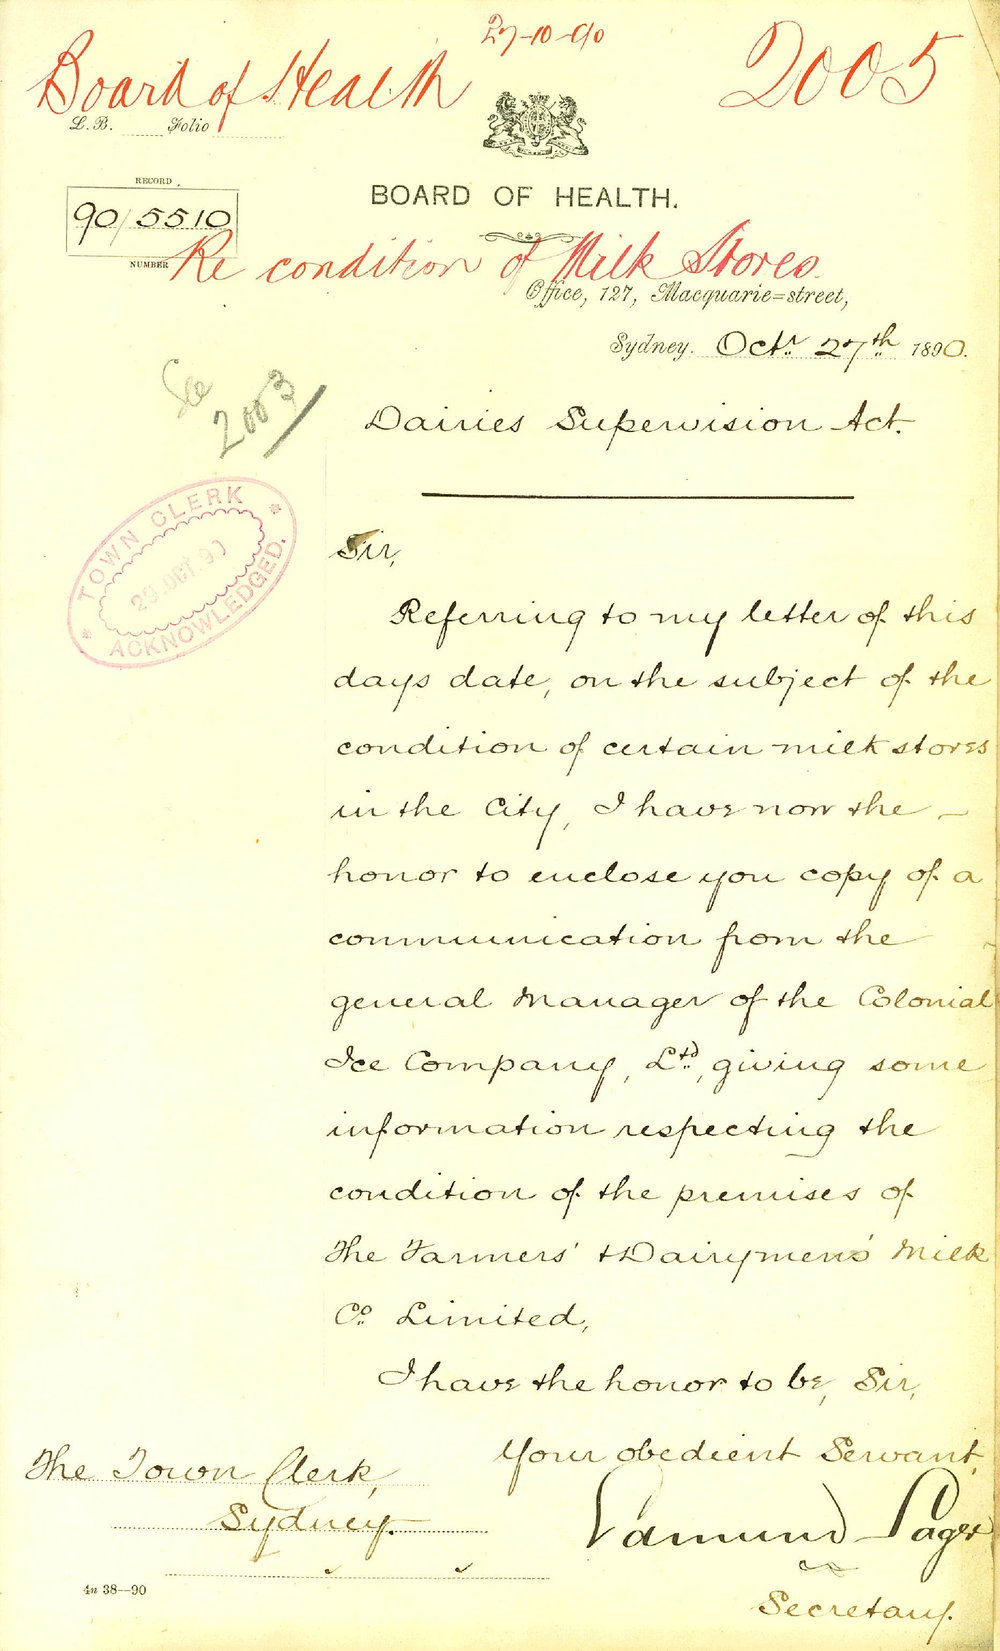 27-10-90
Board of Health
2005
L.B. Folio
RECORD
90/5510
NUMBER
BOARD OF HEALTH.
Re condition of Milk Stores
Office, 127, Macquarie=street,
Sydney. Octr. 27th. 1890.
See
2003
Dairies Supervision Act.
TOWN CLERK
29.OCT.90
ACKNOWLEDGED.
Sir,
Referring to my letter of this
days date, on the subject of the
condition of certain milk stores
in the City, I have now the
honor to enclose you copy of a
communication from the
general Manager of the Colonial
Ice Company, Ltd., giving some
information respecting the
condition of the premises of
The Farmers' & Dairymens' Milk
Co. Limited,
I have the honor to be, Sir,
Your obedient Servant,
The Town Clerk,
Sydney.
Edmund Sager
Secretary.
4n 38—90